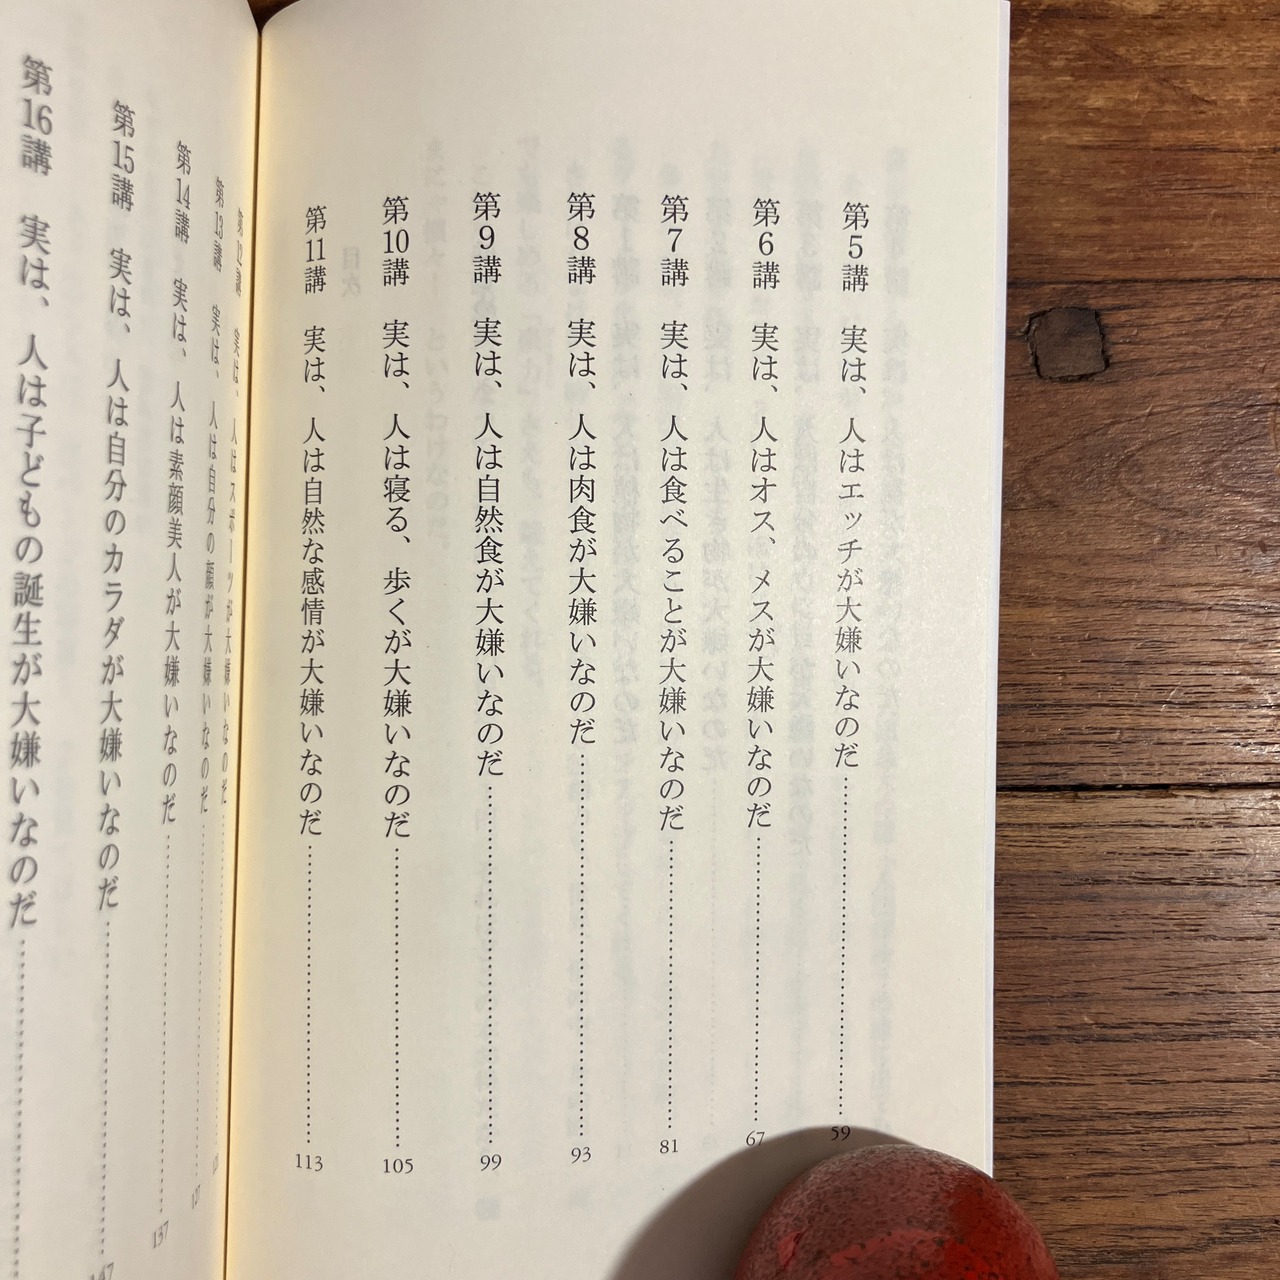 第5講　実は、人はエッチが大嫌いなのだ…………59
第6講　実は、人はオス、メスが大嫌いなのだ…………67
第7講　実は、人は食べることが大嫌いなのだ…………81
第8講　実は、人は肉食が大嫌いなのだ…………93
第9講　実は、人は自然食が大嫌いなのだ…………99
第10講　実は、人は寝る、歩くが大嫌いなのだ…………105
第11講　実は、人は自然な感情が大嫌いなのだ…………113
第12講　実は、人はスポーツが大嫌いなのだ…………
第13講　実は、人は自分の顔が大嫌いなのだ…………127
第14講　実は、人は素顔美人が大嫌いなのだ…………137
第15講　実は、人は自分のカラダが大嫌いなのだ…………147
第16講　実は、人は子どもの誕生が大嫌いなのだ…………